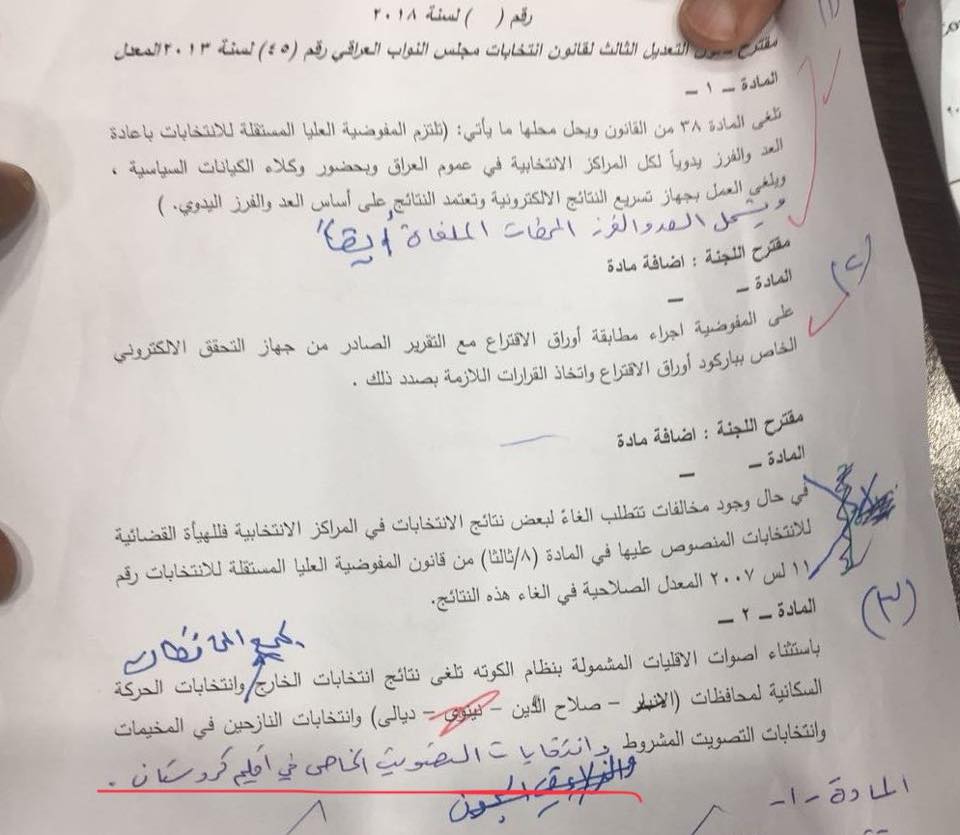 رقم (    ) لسنة ٢٠١٨
مقترح قانون التعديل الثالث لقانون انتخابات مجلس النواب العراقي رقم (٤٥) لسنة ٢٠١٣ المعدل
المادة – ١ –
تلغى المادة ٣٨ من القانون ويحل محلها ما يأتي: (تلتزم المفوضية العليا المستقلة للانتخابات باعادة
العد والفرز يدوياً لكل المراكز الانتخابية في عموم العراق وبحضور وكلاء الكيانات السياسية ،
ويلغى العمل بجهاز تسريع النتائج الالكترونية وتعتمد النتائج على أساس العد والفرز اليدوي. )
ويشمل العد والفرز المحطات الملغاة أيضاً
مقترح اللجنة : اضافة مادة
(٢)
المادة –      –
على المفوضية اجراء مطابقة أوراق الاقتراع مع التقرير الصادر من جهاز التحقق الالكتروني
الخاص بباركود أوراق الاقتراع واتخاذ القرارات اللازمة بصدد ذلك .
مقترح اللجنة : اضافة مادة
المادة –      –
في حال وجود مخالفات تتطلب الغاءً لبعض نتائج الانتخابات في المراكز الانتخابية فللهيأة القضائية
للانتخابات المنصوص عليها في المادة (٨/ثالثا) من قانون المفوضية العليا المستقلة للانتخابات رقم
١١ لس ٢٠٠٧ المعدل الصلاحية في الغاء هذه النتائج.
(٣)
المادة – ٢ –
لجميع المحافظات
باستثناء اصوات الاقليات المشمولة بنظام الكوته تلغى نتائج انتخابات الخارج وانتخابات الحركة
السكانية لمحافظات (الانبار – صلاح الدين – نينوى – ديالى) وانتخابات النازحين في المخيمات
وانتخابات التصويت المشروط وانتخابات التصويت الخاص في اقليم كردستان .
المادة -١-